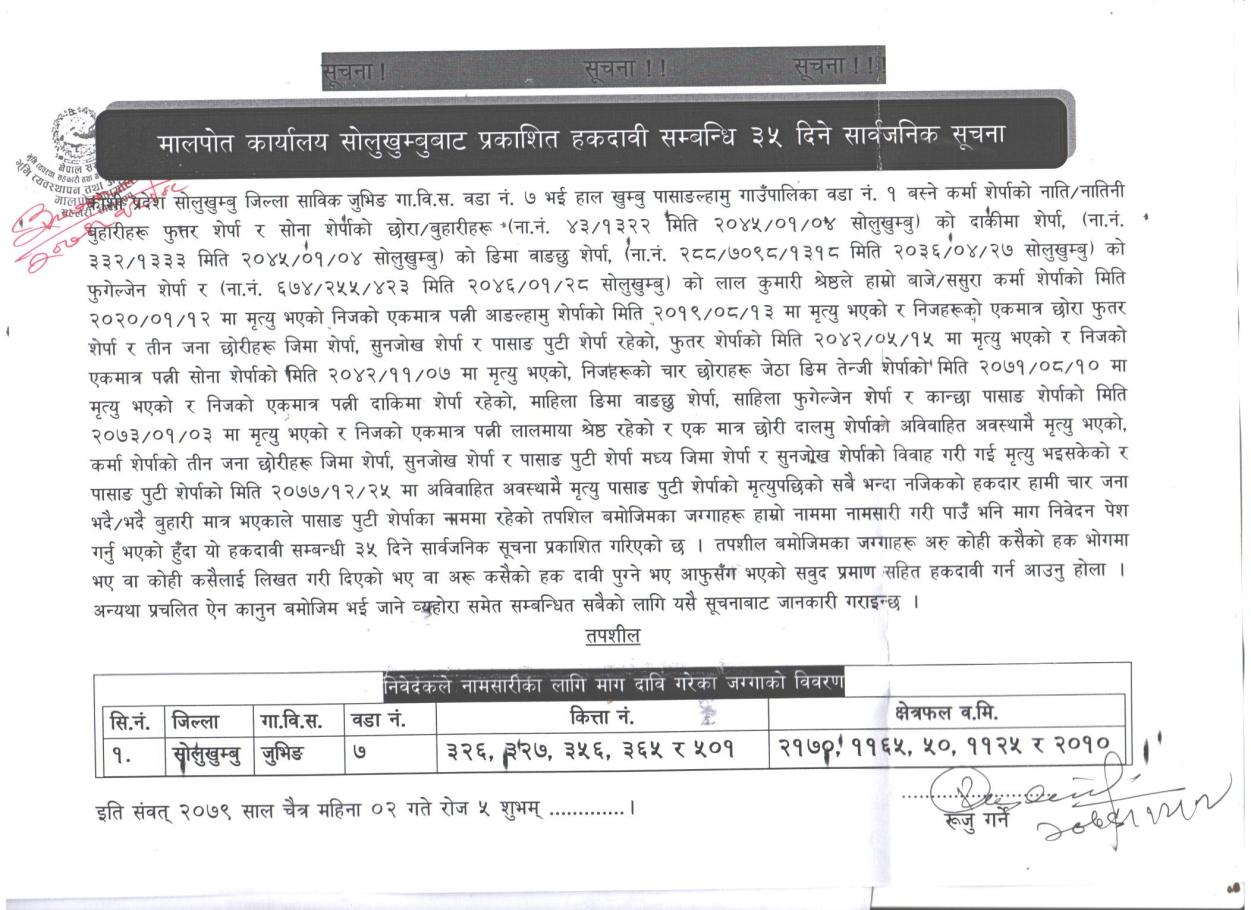 सूचना ! सूचना ! ! सूचना ! ! !
मालपोत कार्यालय सोलुखुम्बुबाट प्रकाशित हकदावी सम्बन्धि ३५ दिने सार्वजनिक सूचना
नेपाल
मालपोत
कोशी प्रदेश सोलुखुम्बु जिल्ला साविक जुभिङ गा.वि.स. वडा नं. ७ भई हाल खुम्बु पासाङल्हामु गाउँपालिका वडा नं. १ बस्ने कर्मा शेर्पाको नाति/नातिनी
बुहारीहरू फुत्तर शेर्पा र सोना शेर्पाको छोरा/बुहारीहरू (ना.नं. ४३/१३२२ मिति २०४५/०१/०४ सोलुखुम्बु) को दाकीमा शेर्पा, (ना.नं.
३३२/१३३३ मिति २०४५/०१/०४ सोलुखुम्बु) को ङिमा वाङछु शेर्पा, (ना.नं. २८८/७०९८/१३१८ मिति २०३६/०४/२७ सोलुखुम्बु) को
फुगेल्जेन शेर्पा र (ना.नं. ६७४/२५५/४२३ मिति २०४६/०१/२८ सोलुखुम्बु) को लाल कुमारी श्रेष्ठले हाम्रो बाजे/ससुरा कर्मा शेर्पाको मिति
२०२०/०१/१२ मा मृत्यु भएको निजको एकमात्र पत्नी आङल्हामु शेर्पाको मिति २०१९/०८/१३ मा मृत्यु भएको र निजहरूको एकमात्र छोरा फुतर
शेर्पा र तीन जना छोरीहरू जिमा शेर्पा, सुनजोख शेर्पा र पासाङ पुटी शेर्पा रहेको, फुतर शेर्पाको मिति २०४२/०५/१५ मा मृत्यु भएको र निजको
एकमात्र पत्नी सोना शेर्पाको मिति २०४२/११/०७ मा मृत्यु भएको, निजहरूको चार छोराहरू जेठा ङिम तेन्जी शेर्पाको मिति २०७१/०८/१० मा
मृत्यु भएको र निजको एकमात्र पत्नी दाकिमा शेर्पा रहेको, माहिला ङिमा वाङछु शेर्पा, साहिला फुगेल्जेन शेर्पा र कान्छा पासाङ शेर्पाको मिति
२०७३/०१/०३ मा मृत्यु भएको र निजको एकमात्र पत्नी लालमाया श्रेष्ठ रहेको र एक मात्र छोरी दालमु शेर्पाको अविवाहित अवस्थामै मृत्यु भएको,
कर्मा शेर्पाको तीन जना छोरीहरू जिमा शेर्पा, सुनजोख शेर्पा र पासाङ पुटी शेर्पा मध्य जिमा शेर्पा र सुनजोख शेर्पाको विवाह गरी गई मृत्यु भइसकेको र
पासाङ पुटी शेर्पाको मिति २०७७/१२/२५ मा अविवाहित अवस्थामै मृत्यु पासाङ पुटी शेर्पाको मृत्युपछिको सबै भन्दा नजिकको हकदार हामी चार जना
भदै/भदै बुहारी मात्र भएकाले पासाङ पुटी शेर्पाका नाममा रहेको तपशिल बमोजिमका जग्गाहरू हाम्रो नाममा नामसारी गरी पाउँ भनि माग निवेदन पेश
गर्नु भएको हुँदा यो हकदावी सम्बन्धी ३५ दिने सार्वजनिक सूचना प्रकाशित गरिएको छ । तपशील बमोजिमका जग्गाहरू अरु कोही कसैको हक भोगमा
भए वा कोही कसैलाई लिखत गरी दिएको भए वा अरू कसैको हक दावी पुग्ने भए आफुसँग भएको सवुद प्रमाण सहित हकदावी गर्न आउनु होला ।
अन्यथा प्रचलित ऐन कानुन बमोजिम भई जाने व्यहोरा समेत सम्बन्धित सबैको लागि यसै सूचनाबाट जानकारी गराइन्छ ।
तपशील
निवेदकले नामसारीका लागि माग दावि गरेका जग्गाको विवरण
सि.नं. जिल्ला गा.वि.स. वडा नं. कित्ता नं. क्षेत्रफल व.मि.
१. सोलुखुम्बु जुभिङ ७ ३२६, ३२७, ३५६, ३६५ र ५०१ २१७०, ११६५, ५०, ११२५ र २०१०
इति संवत् २०७९ साल चैत्र महिना ०२ गते रोज ५ शुभम् .............।
रूजु गर्ने